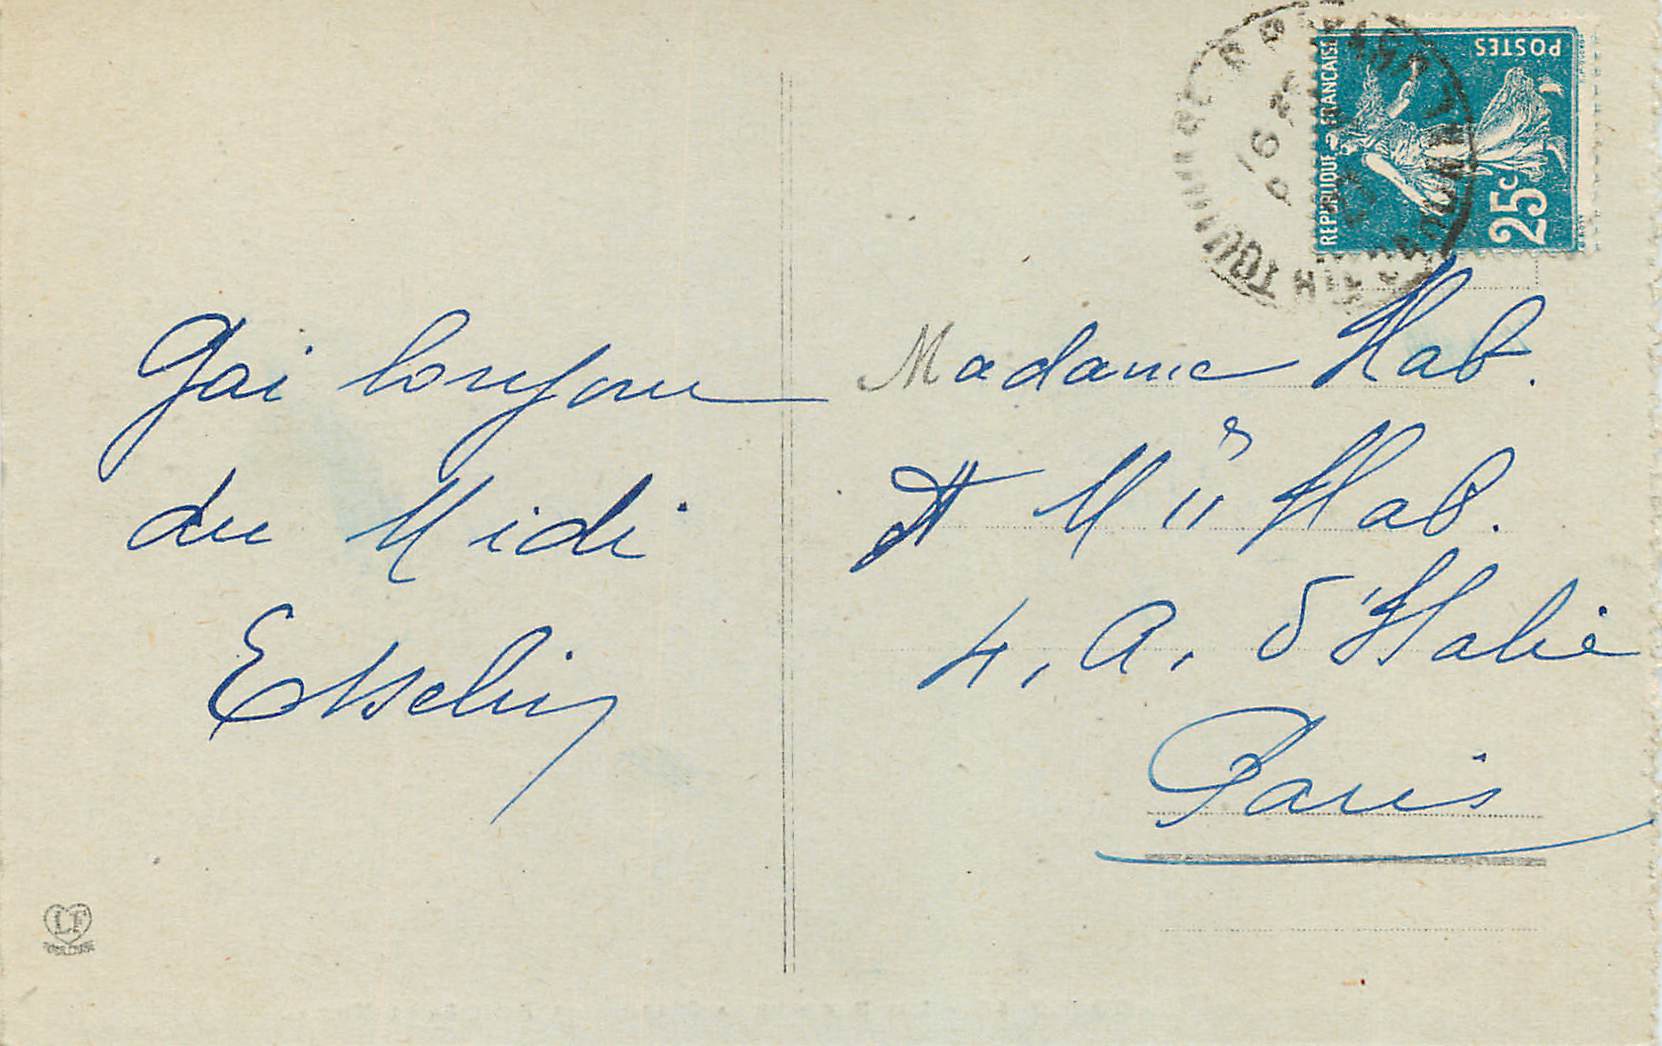 Gai bonjour
du Midi
Madame Hab.
et Mlle Hab.
4, A. d'Italie
Paris
REPUBLIQUE FRANCAISE
POSTES
25c
LF
TOULOUSE